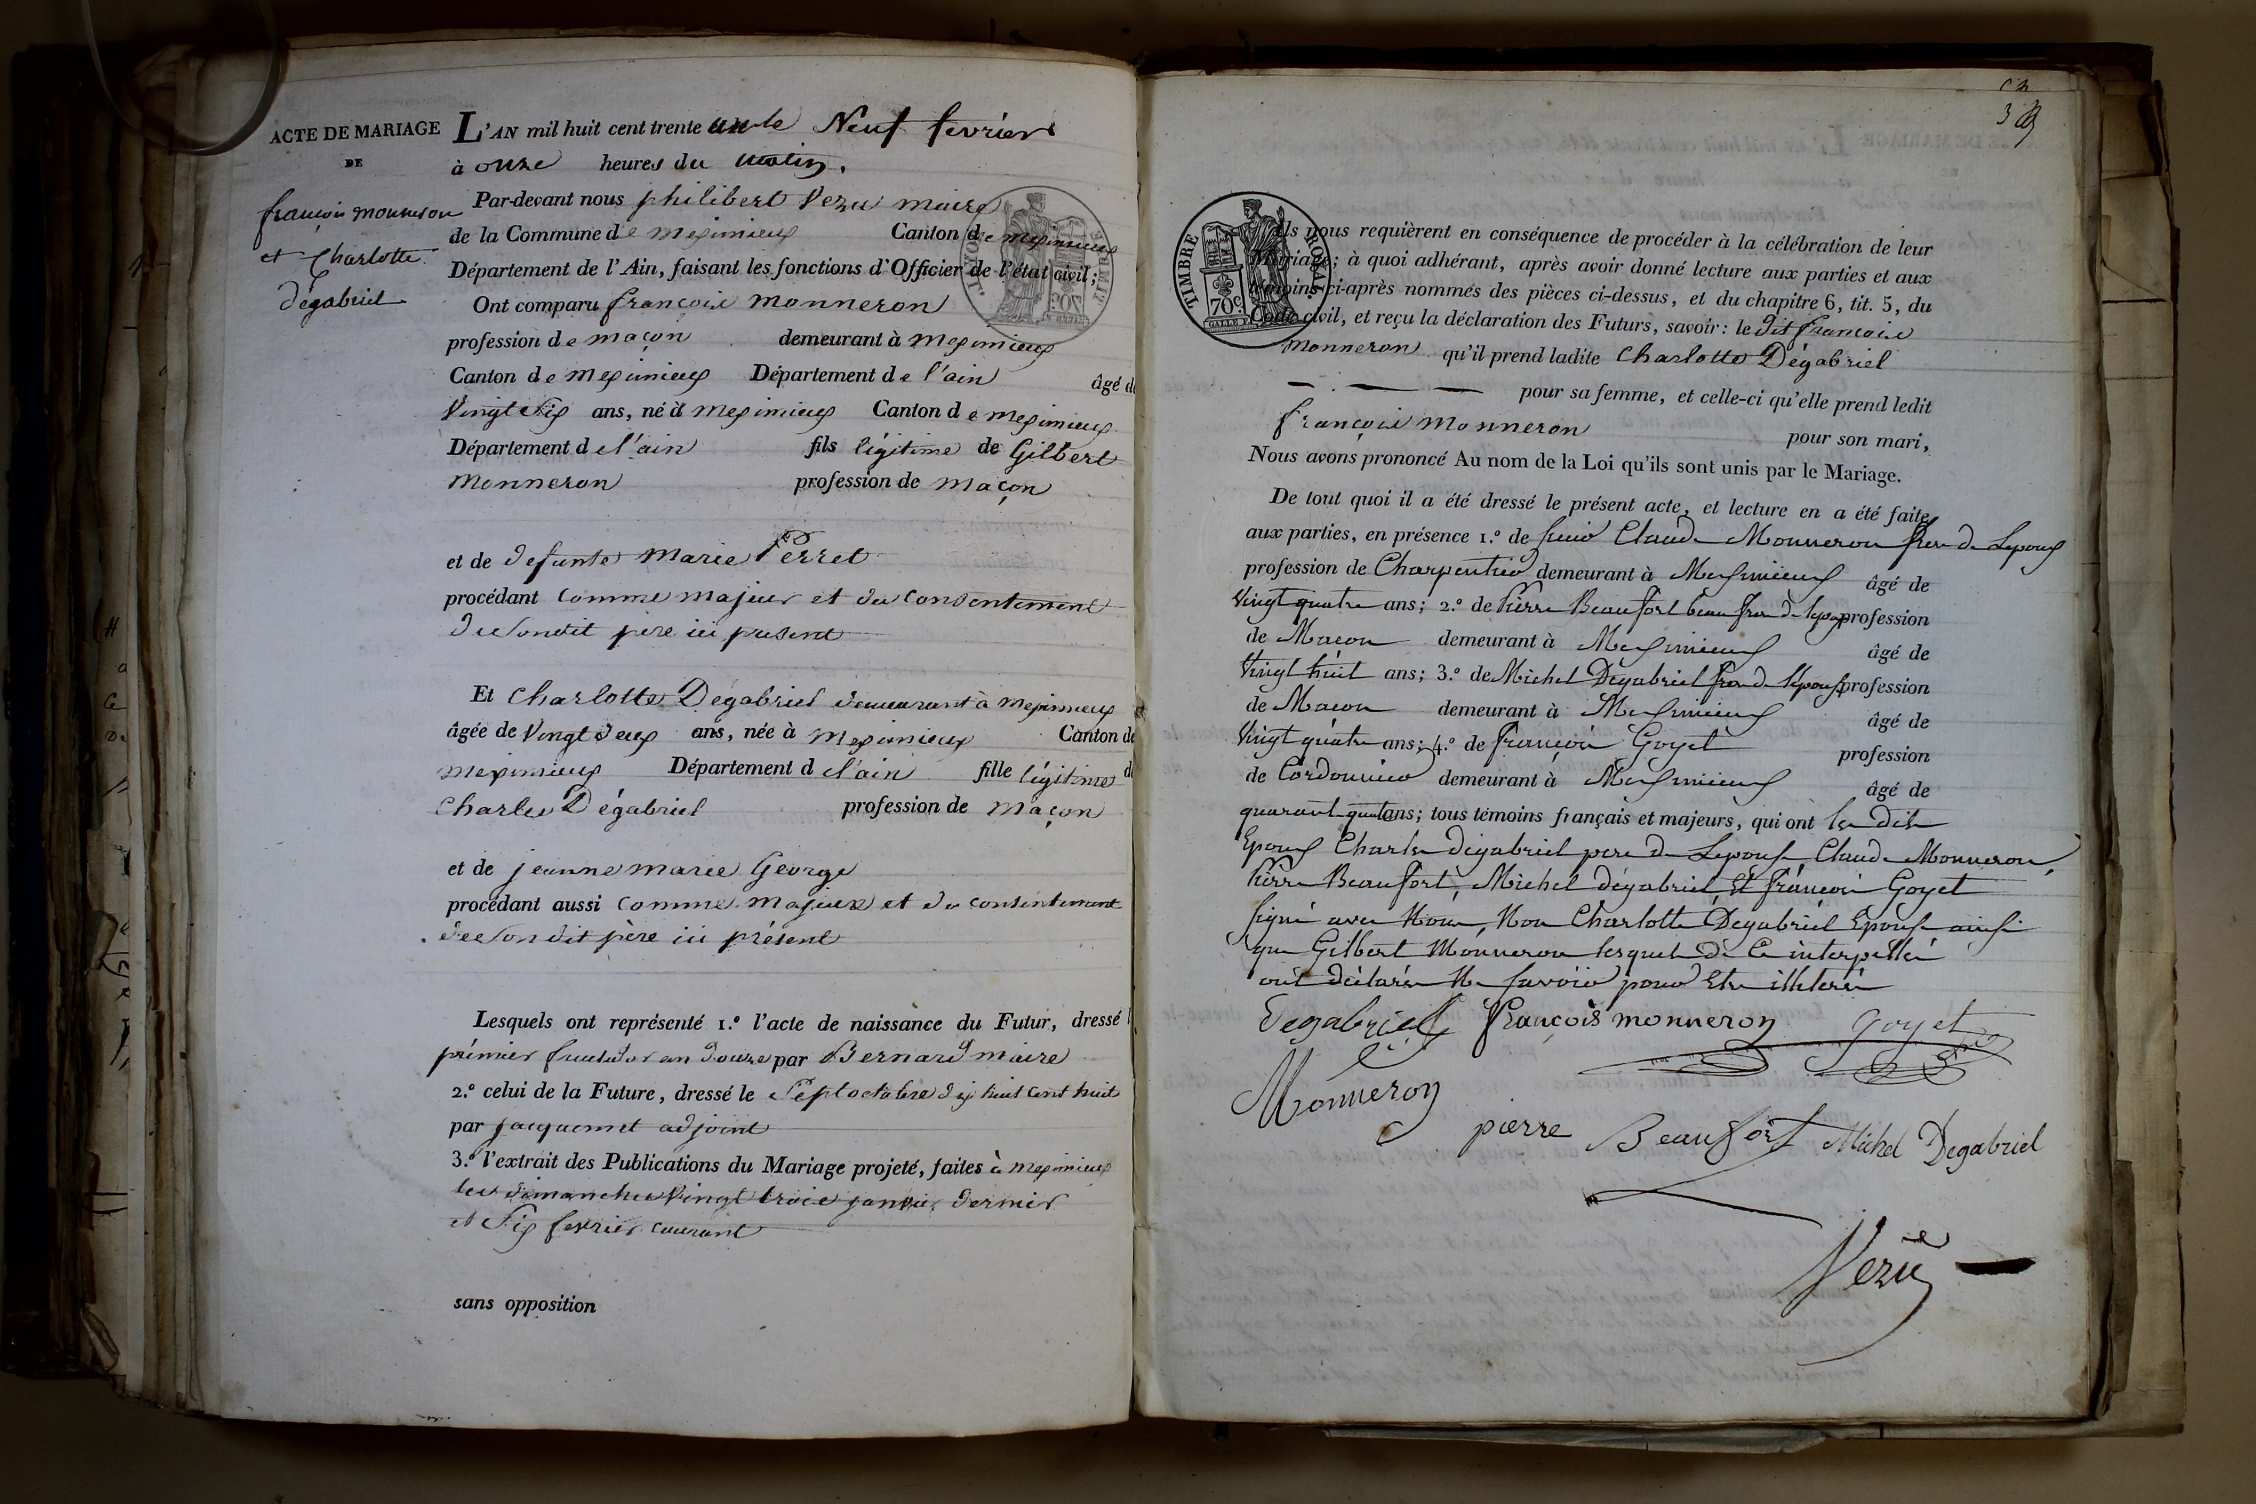 ACTE DE MARIAGE
DE
françois monneron
et Charlotte
dégabriel
L'AN mil huit cent trente un le Neuf fevrier
à onze heures du matin.
Par-devant nous philibert Vezu maire
de la Commune de meximieux Canton de meximieux
Département de l'Ain, faisant les fonctions d'Officier de l'état civil;
Ont comparu françois monneron
profession de maçon demeurant à meximieux
Canton de meximieux Département de l'ain âgé de
Vingt six ans, né à meximieux Canton de meximieux
Département de l'ain fils légitime de Gilbert
monneron profession de maçon
et de defunte marie Perret
procédant comme majeur et du consentement
de son dit père ici present
Et Charlotte Dégabriel demeurant à meximieux
âgée de Vingt deux ans, née à meximieux Canton de
meximieux Département de l'ain fille légitime de
Charles Dégabriel profession de maçon
et de jeanne marie George
procédant aussi comme majeure et du consentement
de son dit père ici présent
Lesquels ont représenté 1.º l'acte de naissance du Futur, dressé l
prémier fructidor an douze par Bernard maire
2.º celui de la Future, dressé le sept octobre dix huit cent huit
par jacquemet adjoint
3.º l'extrait des Publications du Mariage projeté, faites à meximieux
les dimanches Vingt trois janvier dernier
et six fevrier courant
sans opposition
TIMBRE ROYAL
70 c.
Ils nous requièrent en conséquence de procéder à la célébration de leur
Mariage; à quoi adhérant, après avoir donné lecture aux parties et aux
témoins ci-après nommés des pièces ci-dessus, et du chapitre 6, tit. 5, du
Code civil, et reçu la déclaration des Futurs, savoir: le dit françois
monneron qu'il prend ladite Charlotte Dégabriel
pour sa femme, et celle-ci qu'elle prend ledit
françois monneron pour son mari,
Nous avons prononcé Au nom de la Loi qu'ils sont unis par le Mariage.
De tout quoi il a été dressé le présent acte, et lecture en a été faite
aux parties, en présence 1.º de Claude Monneron frere de Lepoux
profession de Charpentier demeurant à Meximieux âgé de
Vingt quatre ans; 2.º de Pierre Beaufort beau frere de lepoux profession
de Macon demeurant à Meximieux âgé de
Vingt huit ans; 3.º de Michel Dégabriel frere de lepouse profession
de Macon demeurant à Meximieux âgé de
Vingt quatre ans; 4.º de françois Goyet profession
de Cordonnier demeurant à Meximieux âgé de
quarante quatre ans; tous témoins français et majeurs, qui ont les dits
Epoux Charles dégabriel pere de Lepouse, Claude Monneron,
Pierre Beaufort, Michel dégabriel, Et françois Goyet
signé avec Nous, Non Charlotte Dégabriel Epouse ainsi
que Gilbert Monneron lesquels de Ce interpellés
ont déclarés Ne savoir pour Etre illeteré
Degabriel françois monneron goyet
Monneron
pierre Beaufort Michel Degabriel
Vezu